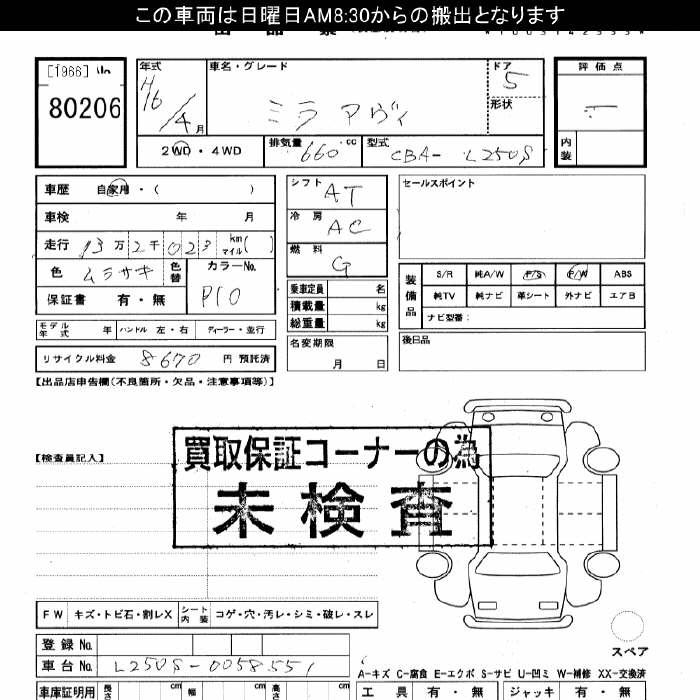 この車両は日曜日AM8:30からの搬出となります
[1966]
80206
年式
H16/4月
車名・グレード
ミラ アヴィ
ドア
5
形状
評価点
内装
2WD・4WD
排気量 660 cc
型式 CBA- L250S
車歴 自家用・( )
車検 年 月
走行 13万2千023 km マイル( )
色 ムラサキ 色替
カラーNo.
P10
保証書 有・無
シフト AT
冷房 AC
燃料 G
乗車定員 名
積載量 kg
総重量 kg
名変期限
月 日
セールスポイント
装備品
S/R 純A/W P/S P/W ABS
純TV 純ナビ 革シート 外ナビ エアB
ナビ型番:
後日品
モデル年式 年 ハンドル 左・右 ディーラー・並行
リサイクル料金 8670 円 預託済
【出品店申告欄(不良箇所・欠品・注意事項等)】
【検査員記入】
買取保証コーナーの為
未検査
FW キズ・トビ石・割レX シート内装 コゲ・穴・汚レ・シミ・破レ・スレ
スペア
登録No.
車台No. L250S-0058551
A-キズ C-腐食 E-エクボ S-サビ U-凹ミ W-補修 XX-交換済
車庫証明用 長さ cm 幅 cm 高さ cm
工具 有・無 ジャッキ 有・無